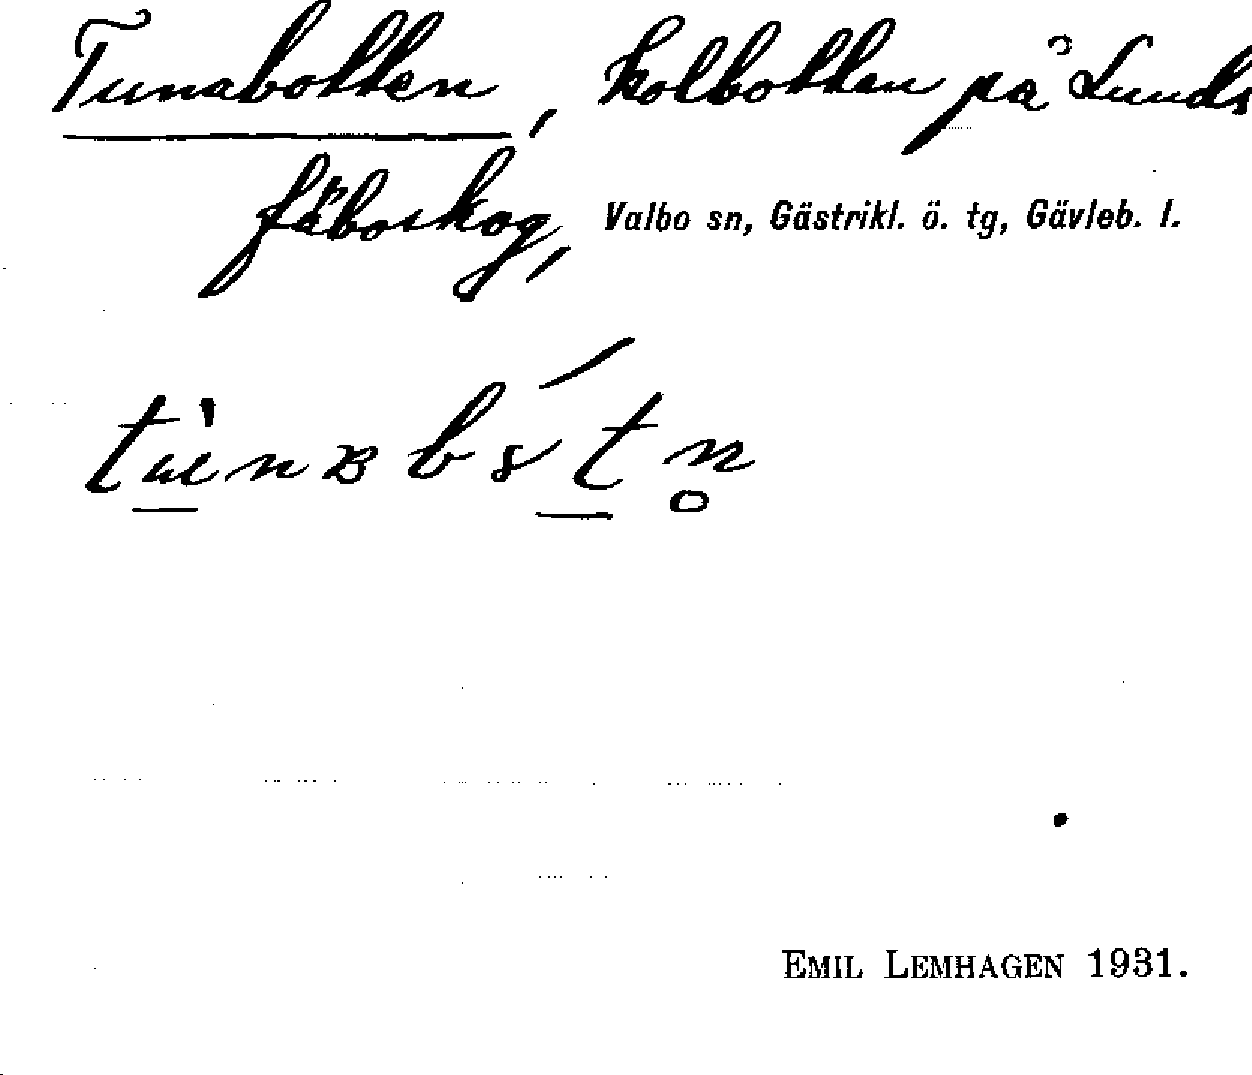 Tunabotten, kolbotten på Lunds
fäboskog, Valbo sn, Gästrikl. ö. tg, Gävleb. l.
EMIL LEMHAGEN 1931.